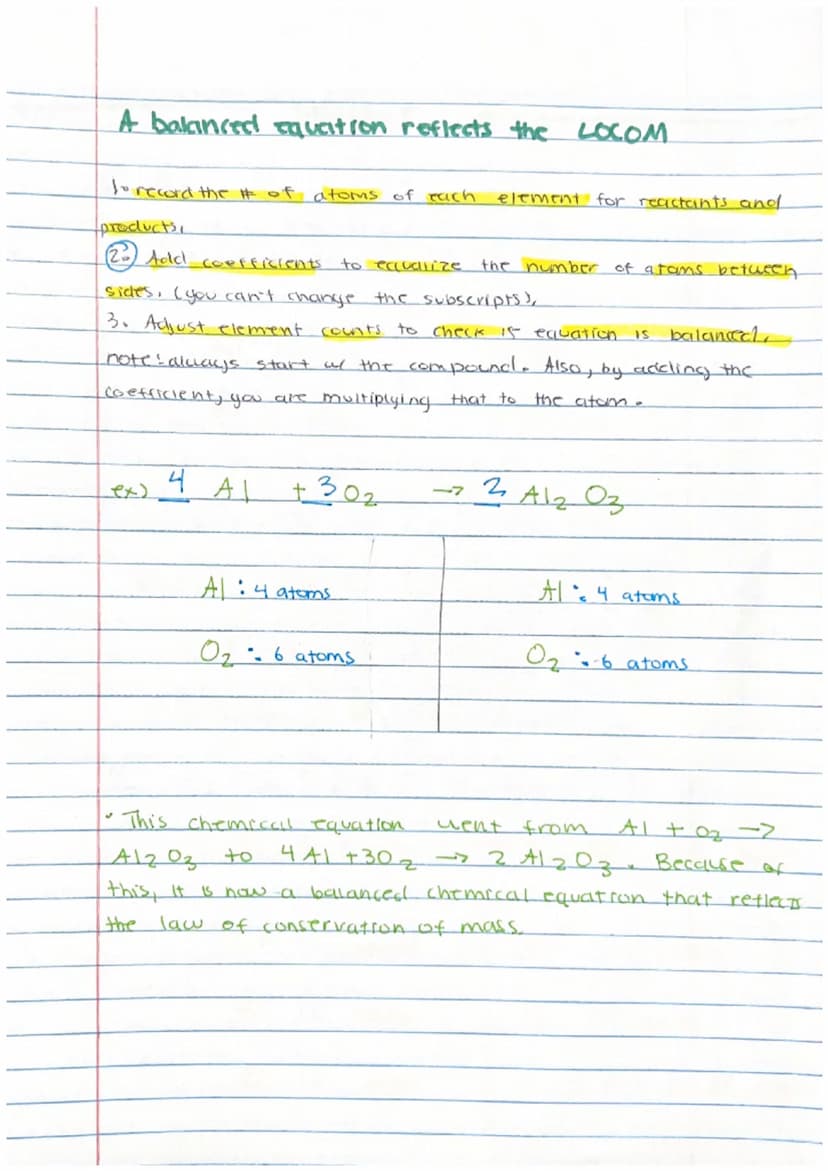 A balanced equation reflects the LOCOM
1. record the # of atoms of each element for reactants and
products.
2. Add coefficients to equalize the number of atoms between
sides. (you can't change the subscripts).
3. Adjust element counts to check if equation is balanced.
note: always start w/ the compound. Also, by adding the
coefficient, you are multiplying that to the atom.
ex) 4 Al + 3 O₂ → 2 Al₂ O₃
Al : 4 atoms Al : 4 atoms
O₂ : 6 atoms O₂ : 6 atoms
• This chemical equation went from Al + O₂ →
Al₂ O₃ to 4 Al + 3O₂ → 2 Al₂O₃. Because of
this, it is now a balanced chemical equation that reflects
the law of conservation of mass.